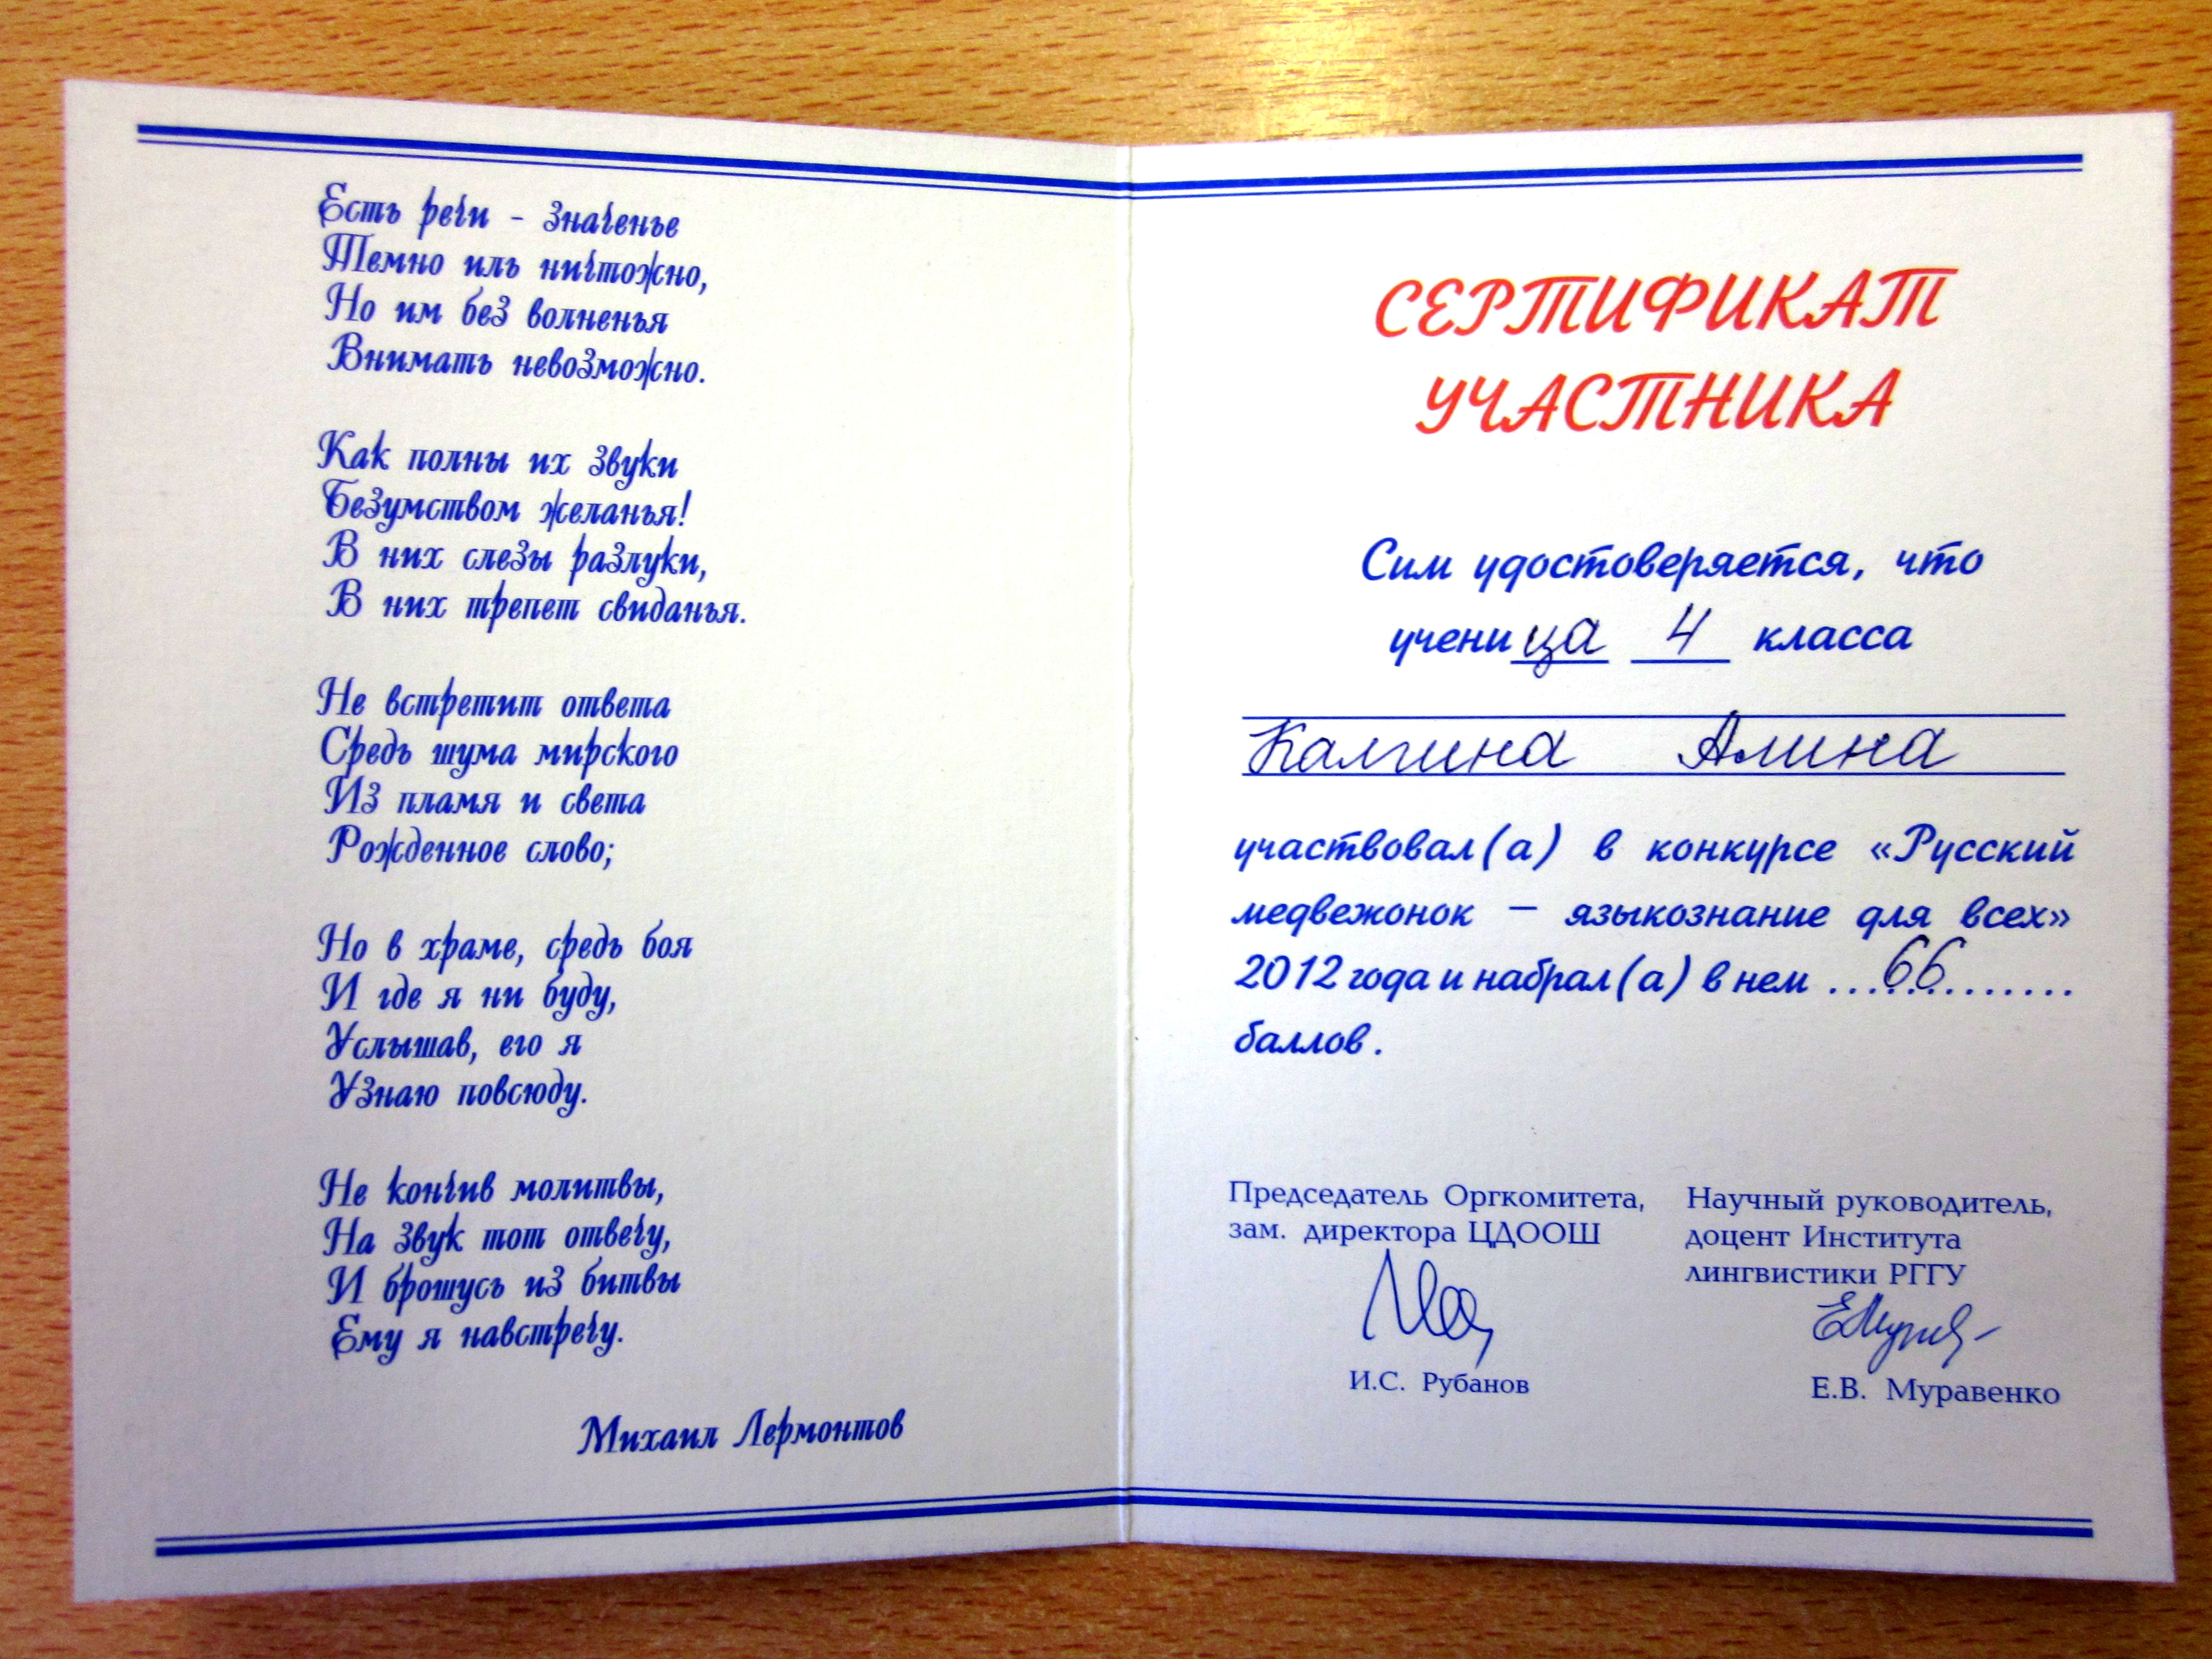 Есть речи - значенье
Темно иль ничтожно,
Но им без волненья
Внимать невозможно.
Как полны их звуки
Безумством желанья!
В них слезы разлуки,
В них трепет свиданья.
Не встретит ответа
Средь шума мирского
Из пламя и света
Рожденное слово;
Но в храме, средь боя
И где я ни буду,
Услышав, его я
Узнаю повсюду.
Не кончив молитвы,
На звук тот отвечу,
И брошусь из битвы
Ему я навстречу.
Михаил Лермонтов
СЕРТИФИКАТ
УЧАСТНИКА
Сим удостоверяется, что
ученица 4 класса
Калгина Алина
участвовал(а) в конкурсе «Русский
медвежонок – языкознание для всех»
2012 года и набрал(а) в нем ...66...........
баллов.
Председатель Оргкомитета,
зам. директора ЦДООШ
И.С. Рубанов
Научный руководитель,
доцент Института
лингвистики РГГУ
Е.В. Муравенко